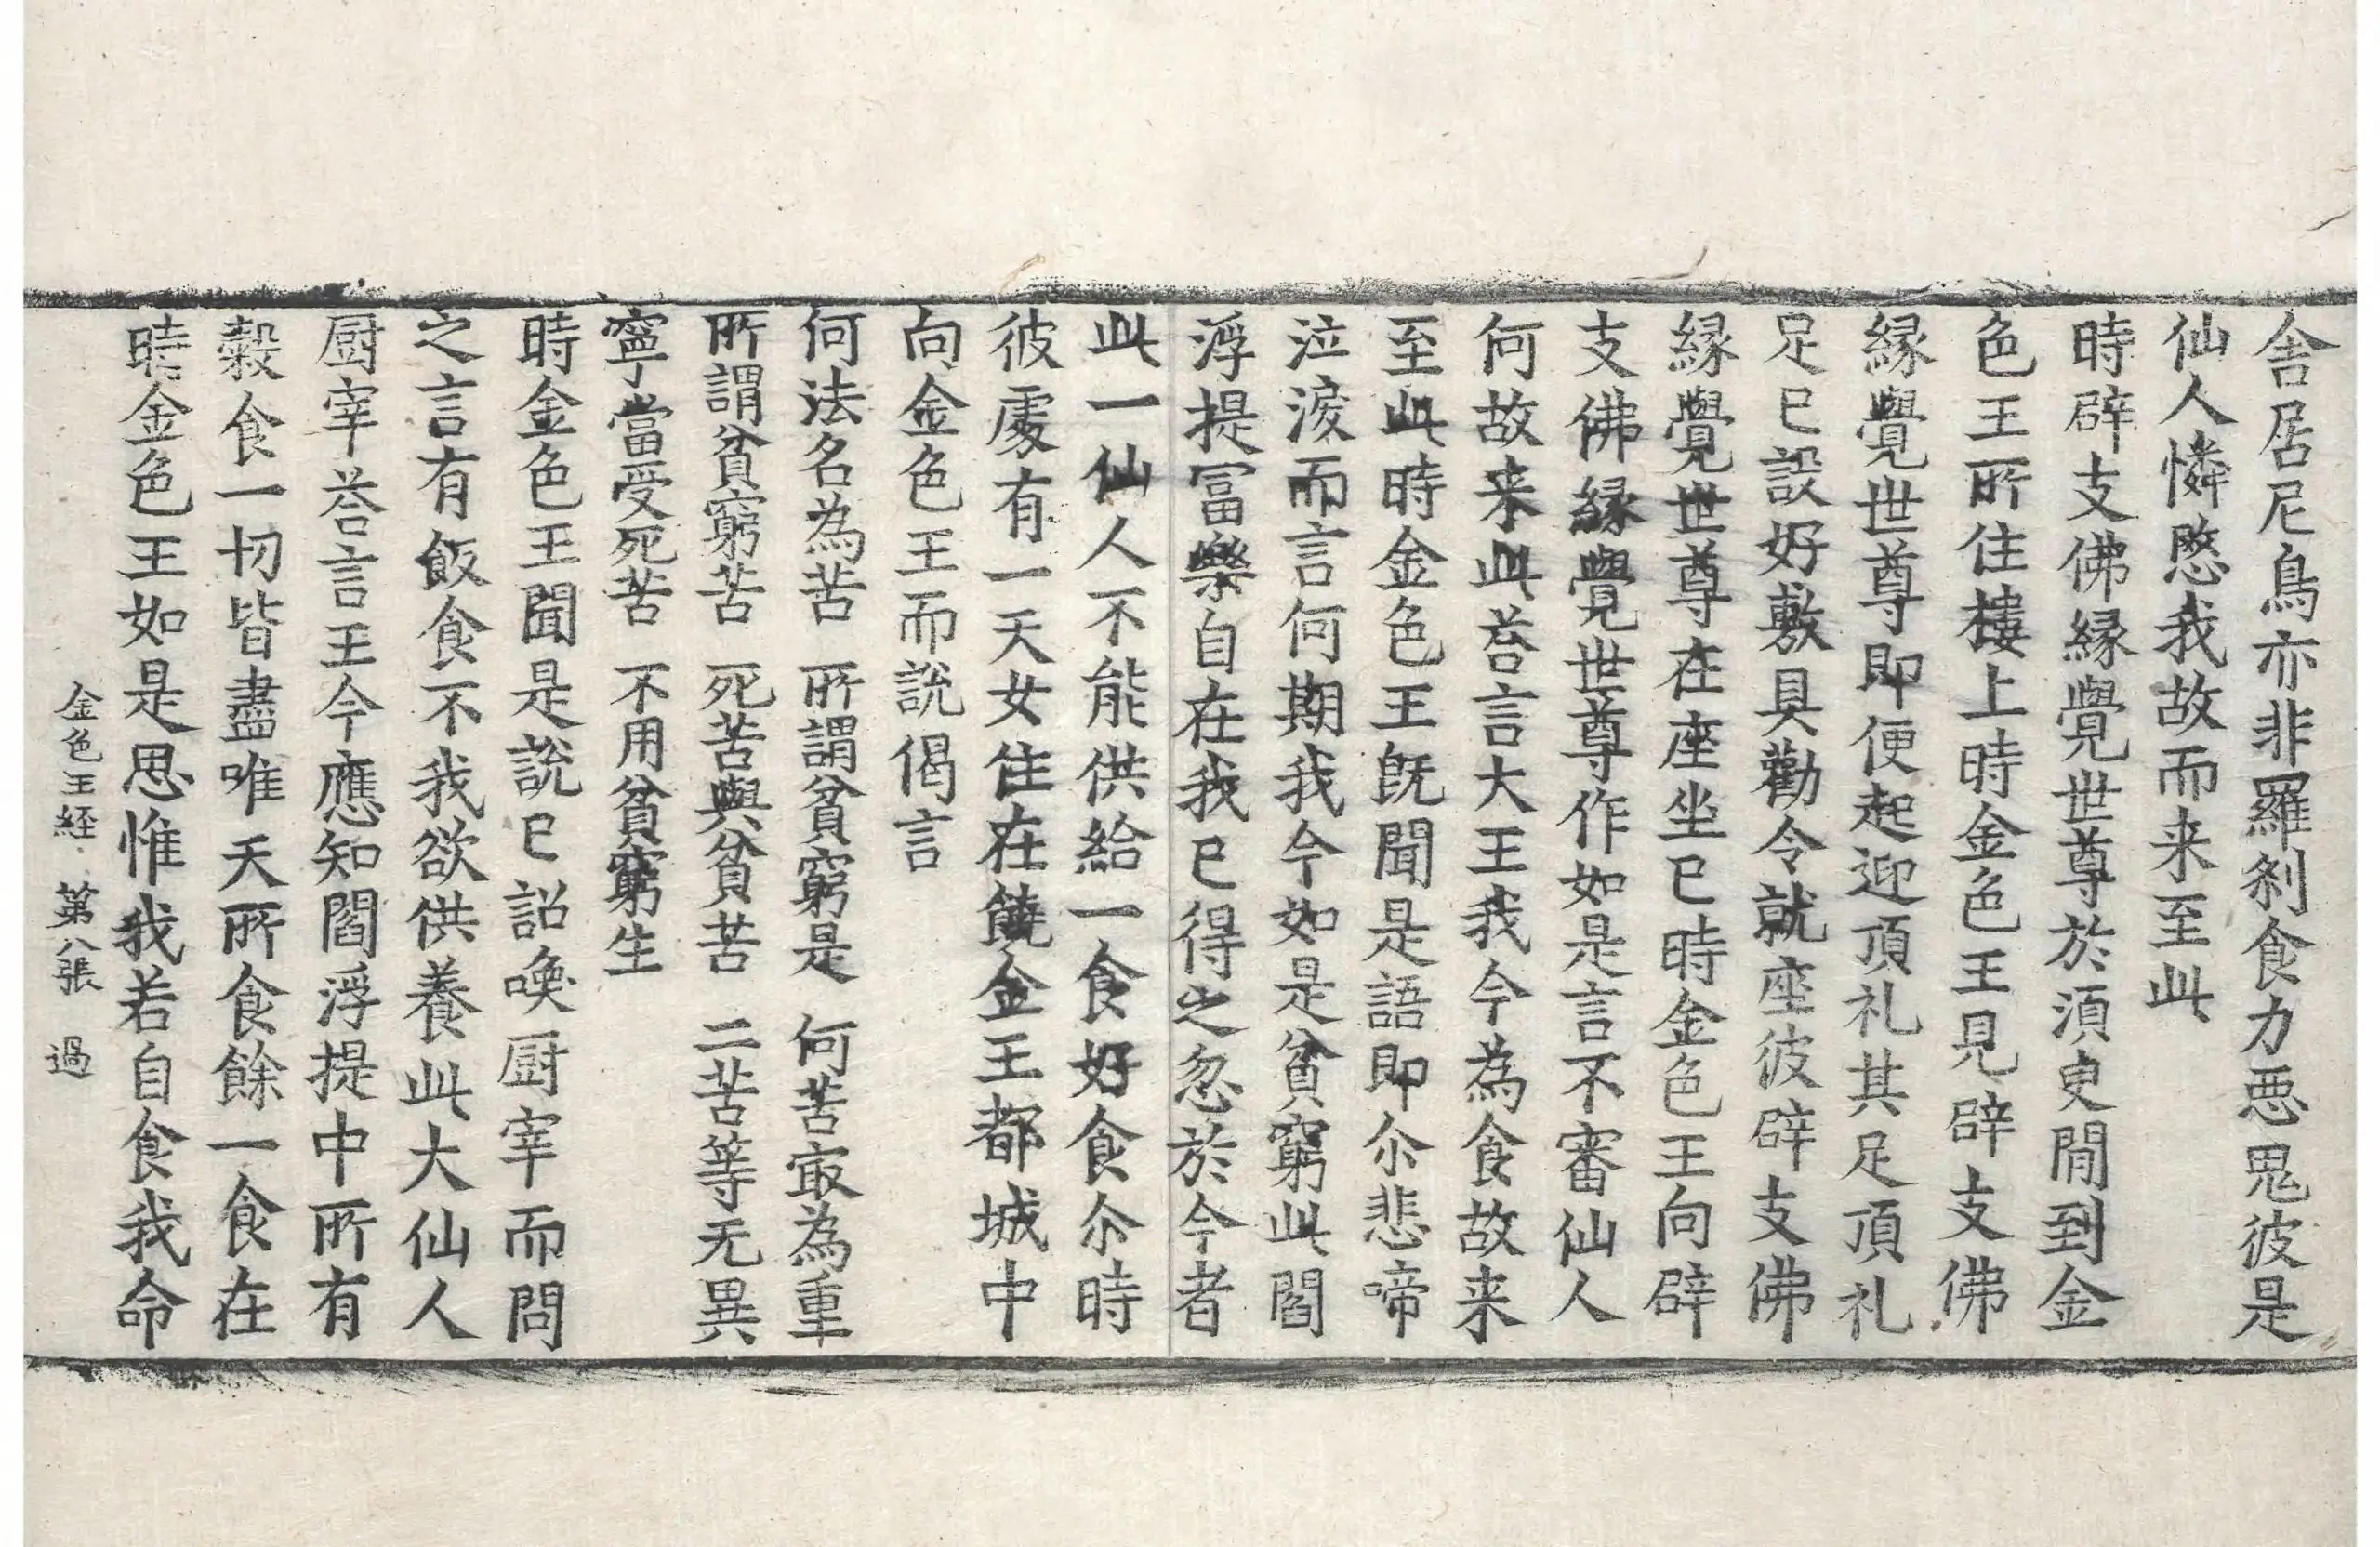 舎居尼鳥亦非羅刹食力悪鬼彼是
仙人憐愍我故而来至此
時辟支佛縁覺世尊於須臾閒到金
色王所住樓上時金色王見辟支佛
縁覺世尊即便起迎頂礼其足頂礼
足已設好敷具勸令就座彼辟支佛
縁覺世尊在座坐已時金色王向辟
支佛縁覺世尊作如是言不審仙人
何故来此荅言大王我今為食故来
至此時金色王旣聞是語即尒悲啼
泣淚而言何期我今如是貧窮此閻
浮提冨樂自在我已得之忽於今者
此一仙人不能供給一食好食尒時
彼處有一天女住在饒金王都城中
向金色王而說偈言
何法名為苦 所謂貧窮是 何苦㝡為重
所謂貧窮苦 死苦與貧苦 二苦等无異
寧當受死苦 不用貧窮生
時金色王聞是說已詔喚厨宰而問
之言有飯食不我欲供養此大仙人
厨宰荅言王今應知閻浮提中所有
穀食一切皆盡唯天所食餘一食在
時金色王如是思惟我若自食我命
金色王経 第八張 過